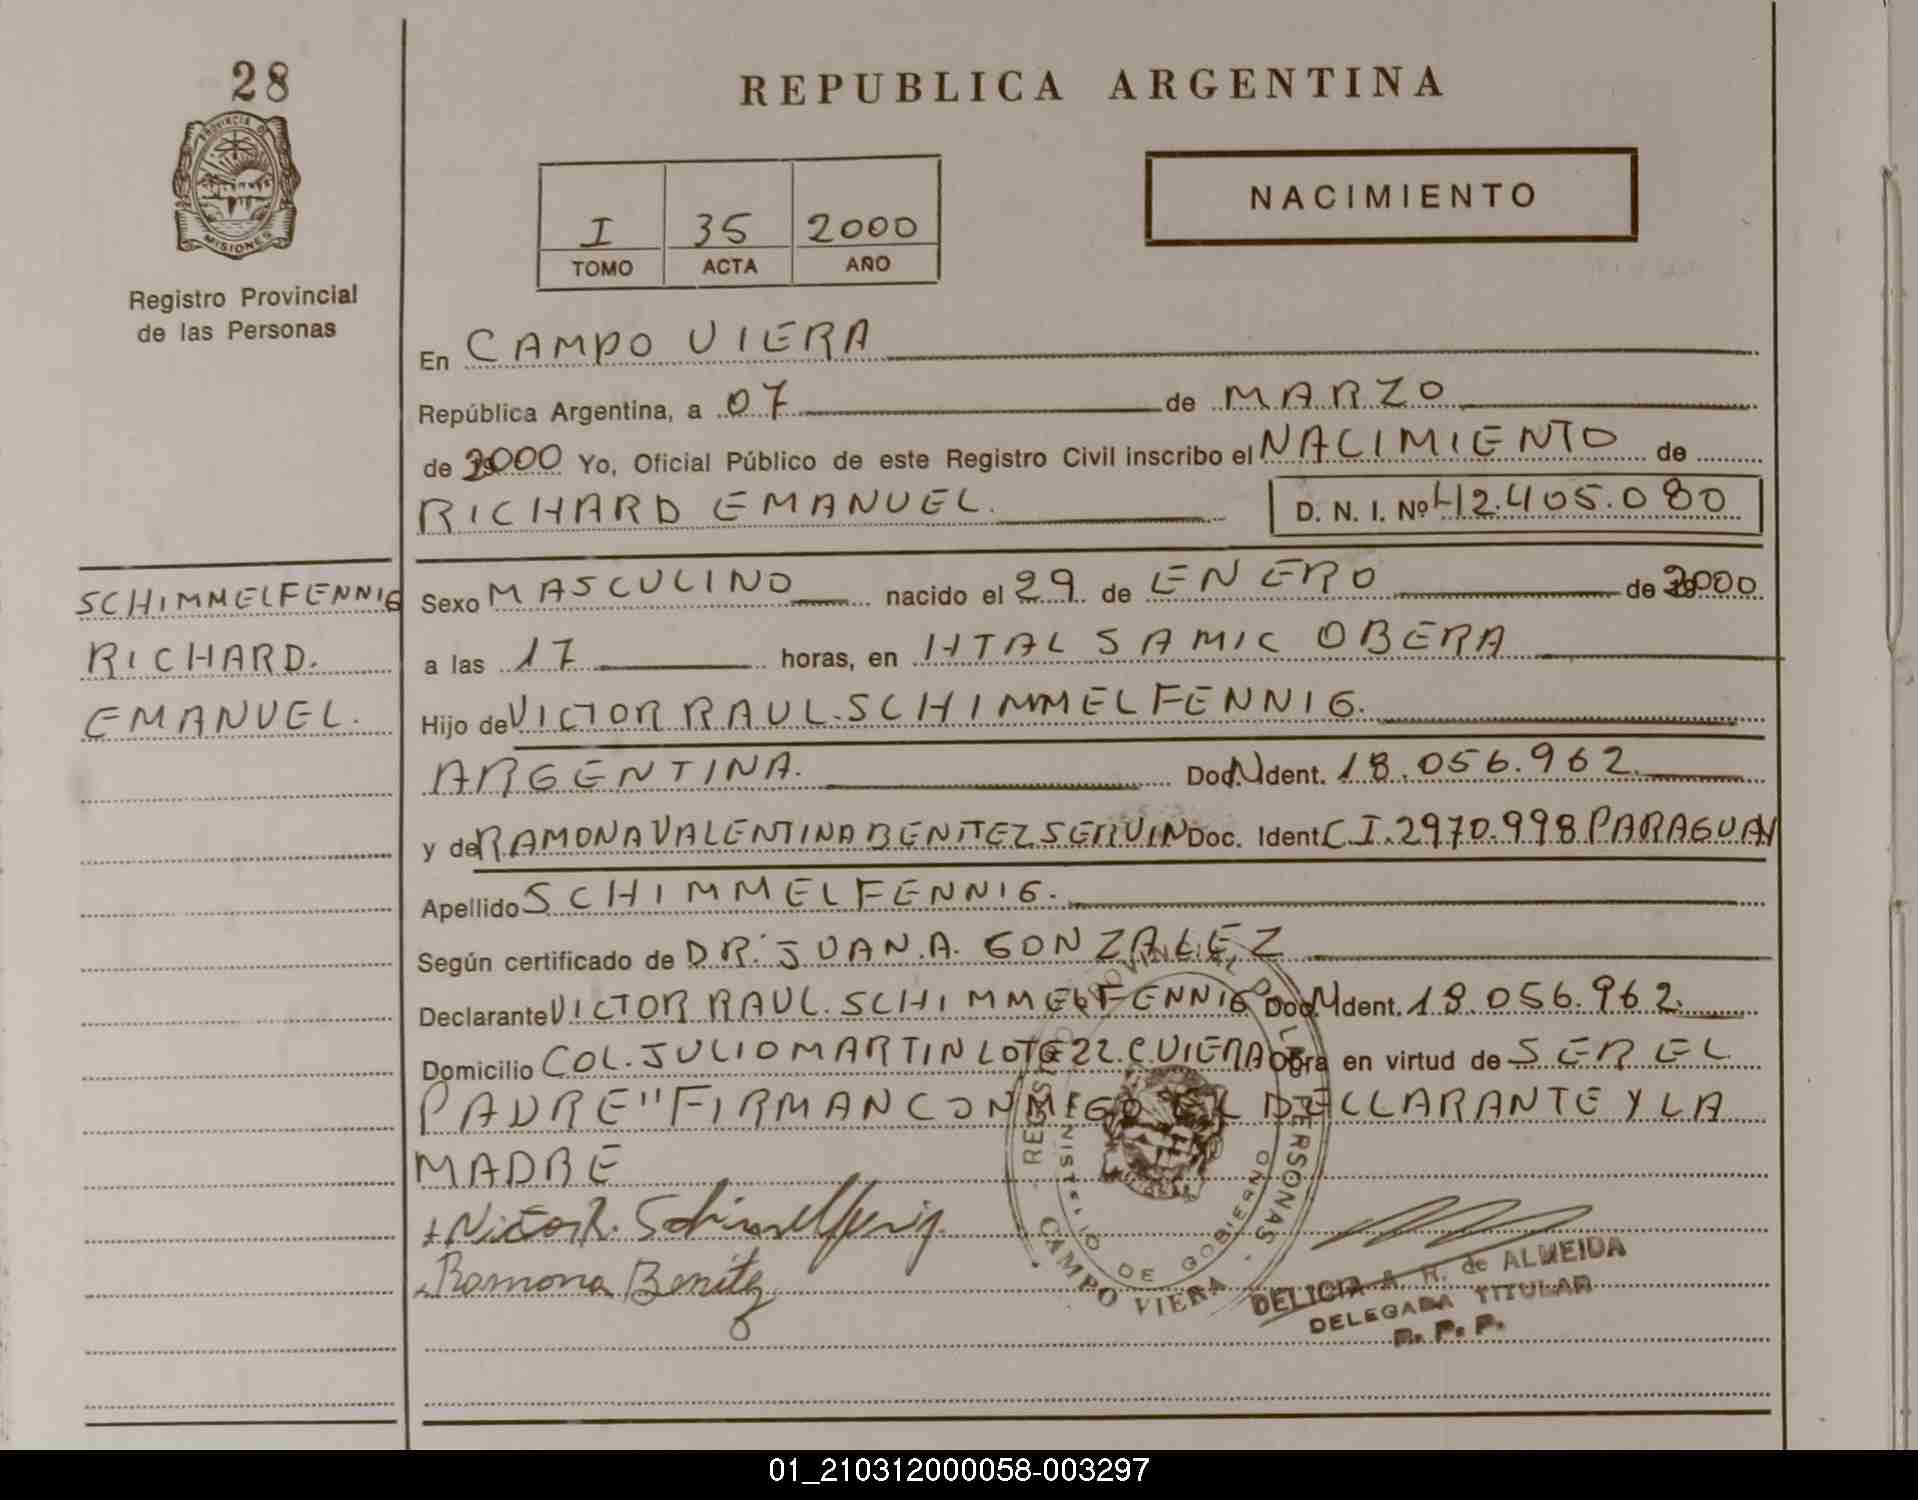 28
PROVINCIA DE
MISIONES
Registro Provincial
de las Personas
REPUBLICA ARGENTINA
I 35 2000
TOMO ACTA AÑO
NACIMIENTO
En CAMPO VIERA
República Argentina, a 07 de MARZO
de 2000 Yo, Oficial Público de este Registro Civil inscribo el NACIMIENTO de
RICHARD EMANUEL. D. N. I. Nº 42.405.080
SCHIMMELFENNIG
RICHARD.
EMANUEL.
Sexo MASCULINO nacido el 29 de ENERO de 2000
a las 17 horas, en HTAL SAMIC OBERA
Hijo de VICTOR RAUL SCHIMMELFENNIG.
ARGENTINA. Doc. Ident. 18.056.962.
y de RAMONA VALENTINA BENITEZ SERVIN Doc. Ident C.I. 2970.998 PARAGUAY
Apellido SCHIMMELFENNIG.
Según certificado de DR. JUAN A. GONZALEZ
Declarante VICTOR RAUL SCHIMMELFENNIG Doc. Ident. 18.056.962.
Domicilio COL. JULIO MARTIN LOTE 22 C. VIERA Obra en virtud de SER EL
PADRE" FIRMAN CONMIGO EL DECLARANTE Y LA
MADRE
Victor R. Schimmelfennig
Ramona Benitez
REGISTRO PROVINCIAL DE LAS PERSONAS
MINISTERIO DE GOBIERNO
CAMPO VIERA
DELICIA A. H. de ALMEIDA
DELEGADA TITULAR
R. P. P.
01_210312000058-003297